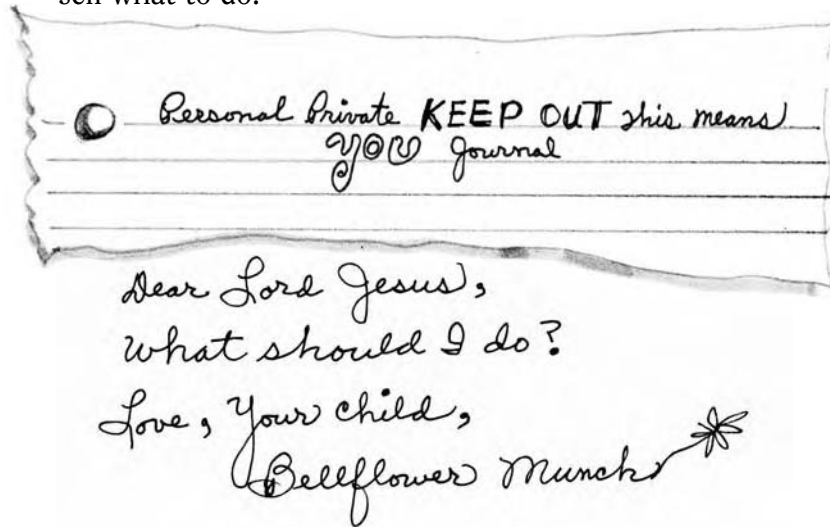 self what to do.
Personal Private KEEP OUT This means
YOU Journal
Dear Lord Jesus,
What should I do?
Love, Your child,
Bellflower Munch